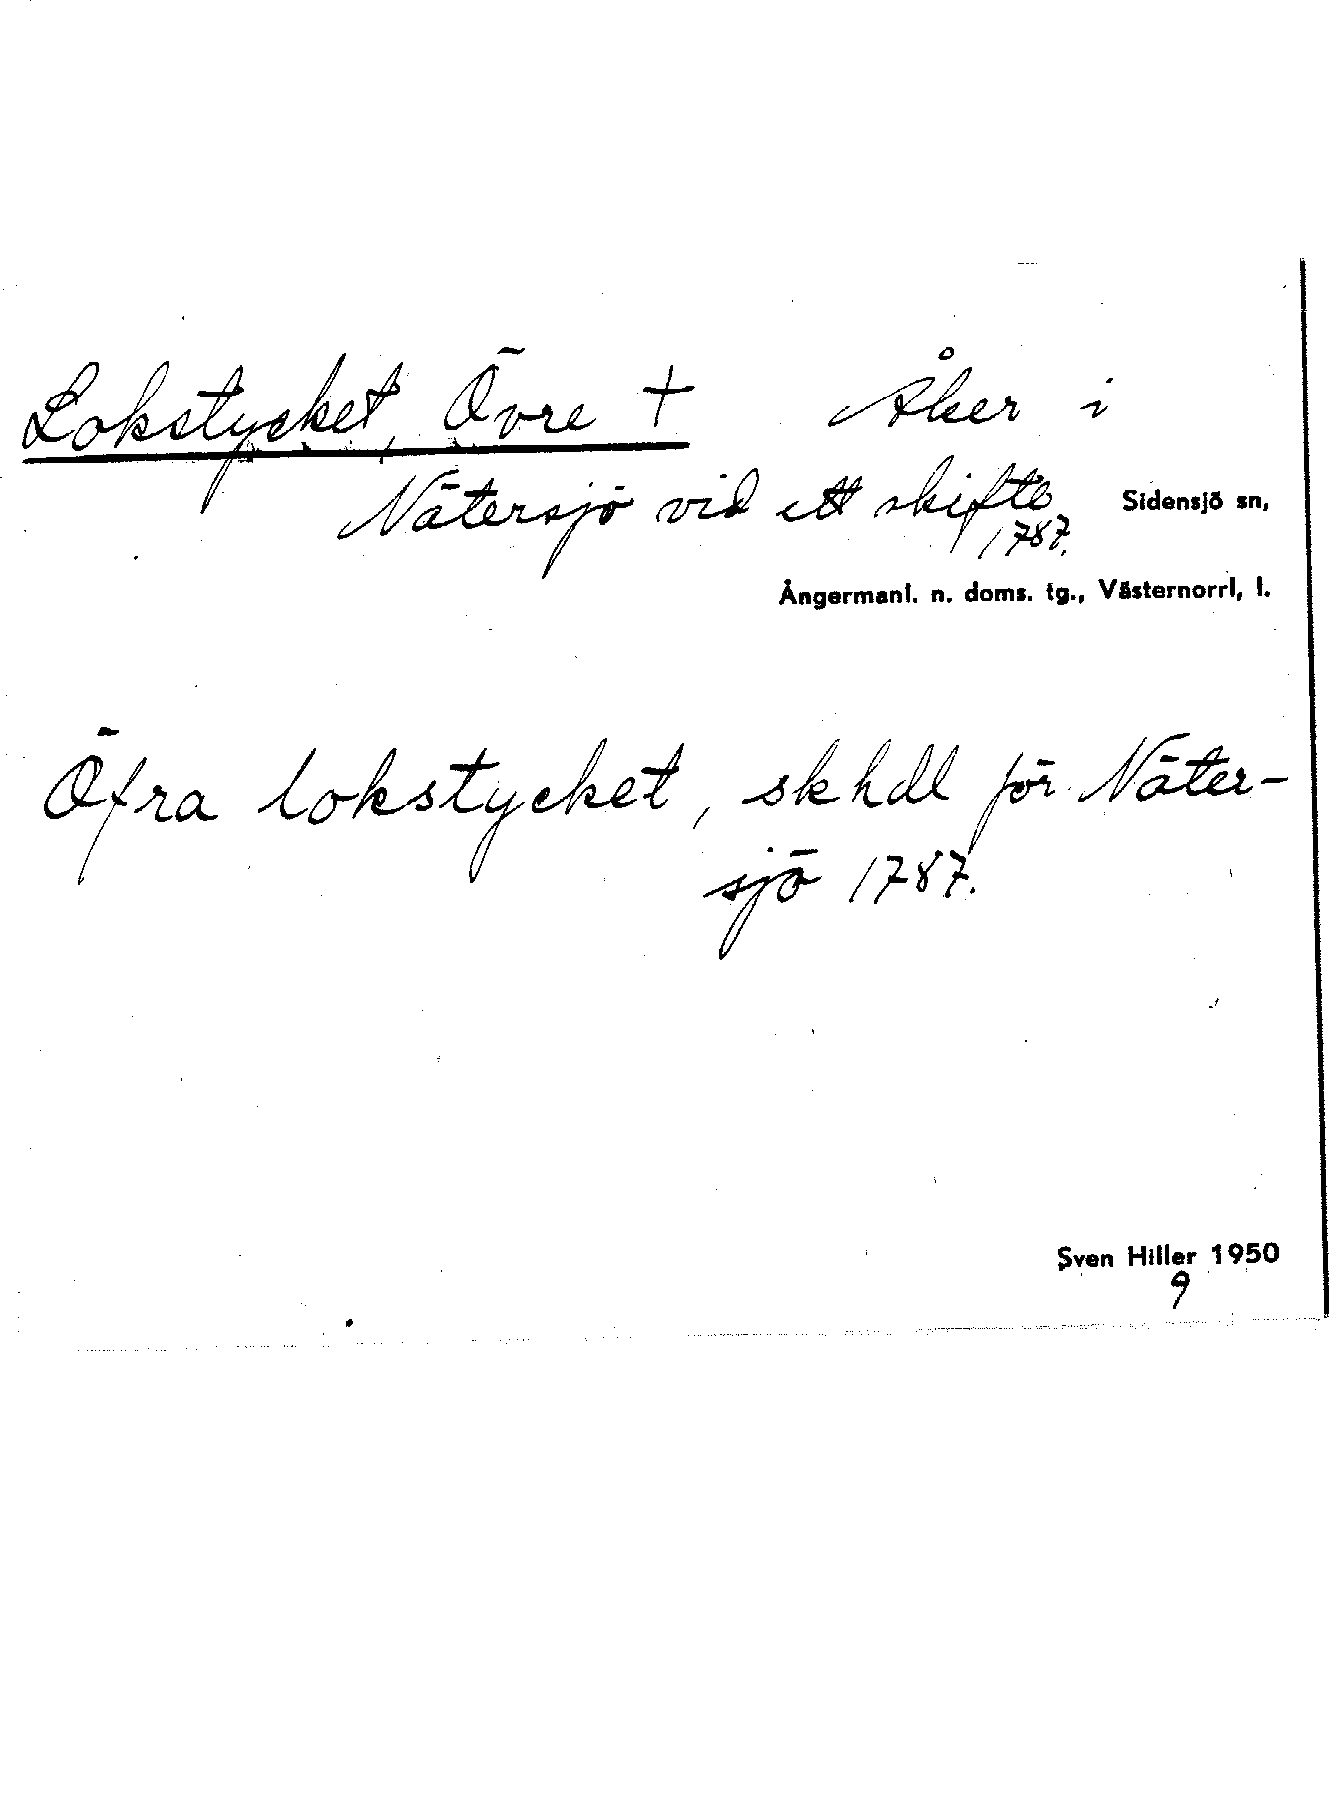 Lokstycket, Övre + Åker i
Nätersjö vid ett skifte Sidensjö sn,
1787.
Ångermanl. n. doms. tg., Västernorrl, l.
Öfra lokstycket, skhdl för Näter-
sjö 1787.
Sven Hiller 1950
9